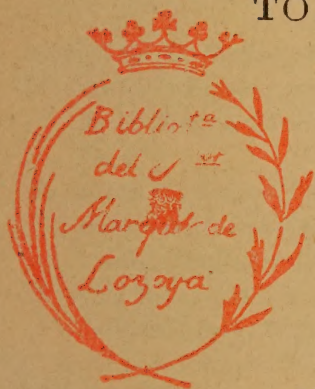 TO
Bibliot.ta
del
Marqués de
Lozoya